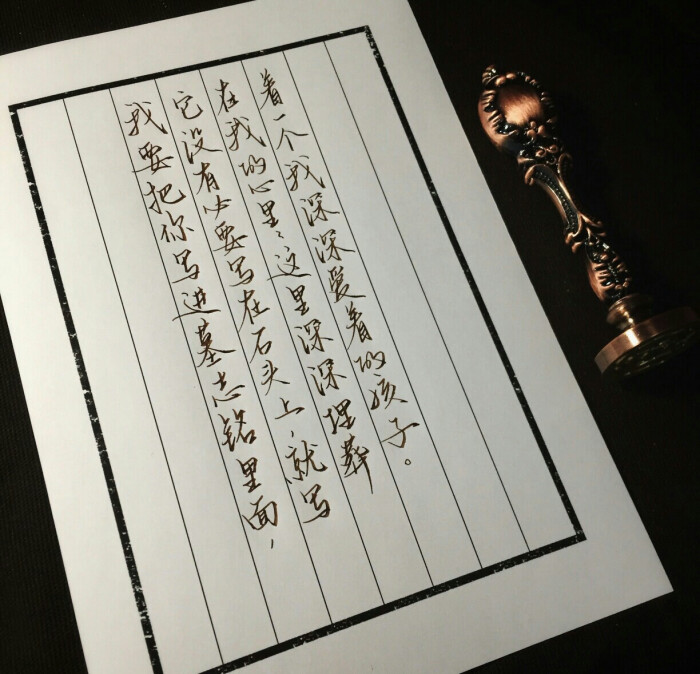 我要把你写进墓志铭里面，
它没有必要写在石头上，就写
在我的心里，这里深深埋葬
着一个我深深爱着的孩子。